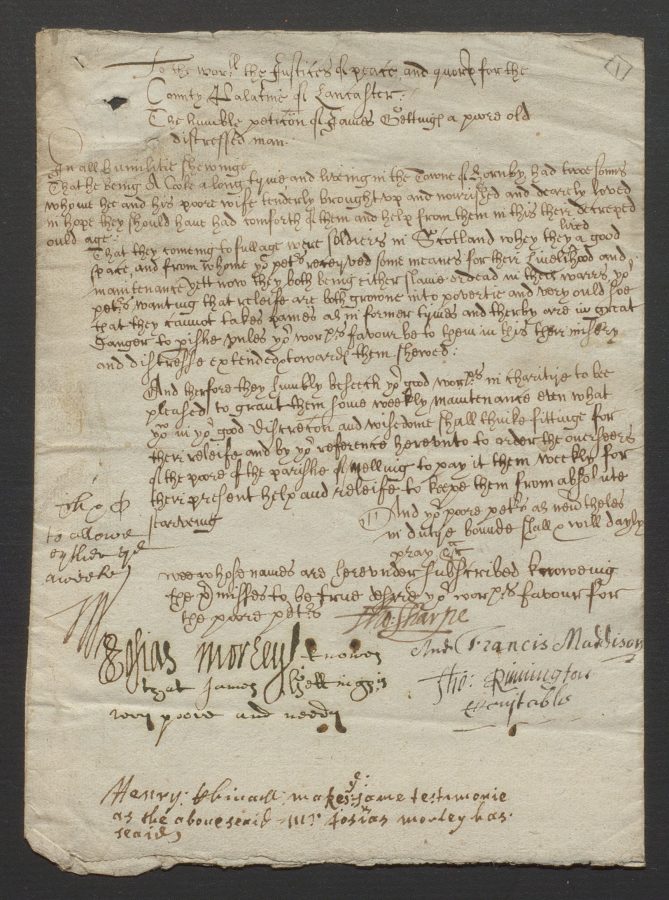 To the wor:ll the Justices of peace and quorum for the
County Palatine of Lancaster:
The humble peticon of James a poore old
distressed man.
In all humilitie shewinge
That he being A Cooke a long tyme and liveing in the Towne of Hornby, had twoe sonns
whome he and his poore wife tenderly brought vp and norrished and dearely loved
in hope they should have had comforth of them and help from them in this their decreped
ould age:
That they comeing to full age were soldiers in Scotland wher they lived a good
space, and from whome yor petrs receyved some meanes for their livelihood and
maintenance yett now they both being either slaine or dead in these warrs yor
petrs wanting that releife are both growne into povertie and very ould soe
that they cannot takes paines as in former tymes and therby are in great
danger to pishe vnles yor worps favour be to them in this their misery
and distresse extended towards them shewed:
And therfore they humbly beseech yor good worps in charitye to be
pleased to grant them some weekly maintenance even what
yor in yor good discretion and wisedome shall thinke fittinge for
their releife and by yor reference herevnto to order the overseers
of the poore of the parishe of Melling to pay it them weekly for
their present help and releife to keepe them from absolute
starveing
And yor poore petrs as neuertheles
in dutye bounde shall & will dayly
pray &c
to allowe
eyther
a weeke
wee whose names are herevnder subscribed knoweing
the pmisses to be true desire yor worps favour for
the poore petrs
Tho: Sharpe
And Francis Maddison
Josias Morley knowes
Tho: Rimington
that James
Constable
very poore and needy
Henry: makes ye same testimonie
as the aboueseaid Mr Josias morley has
seaid